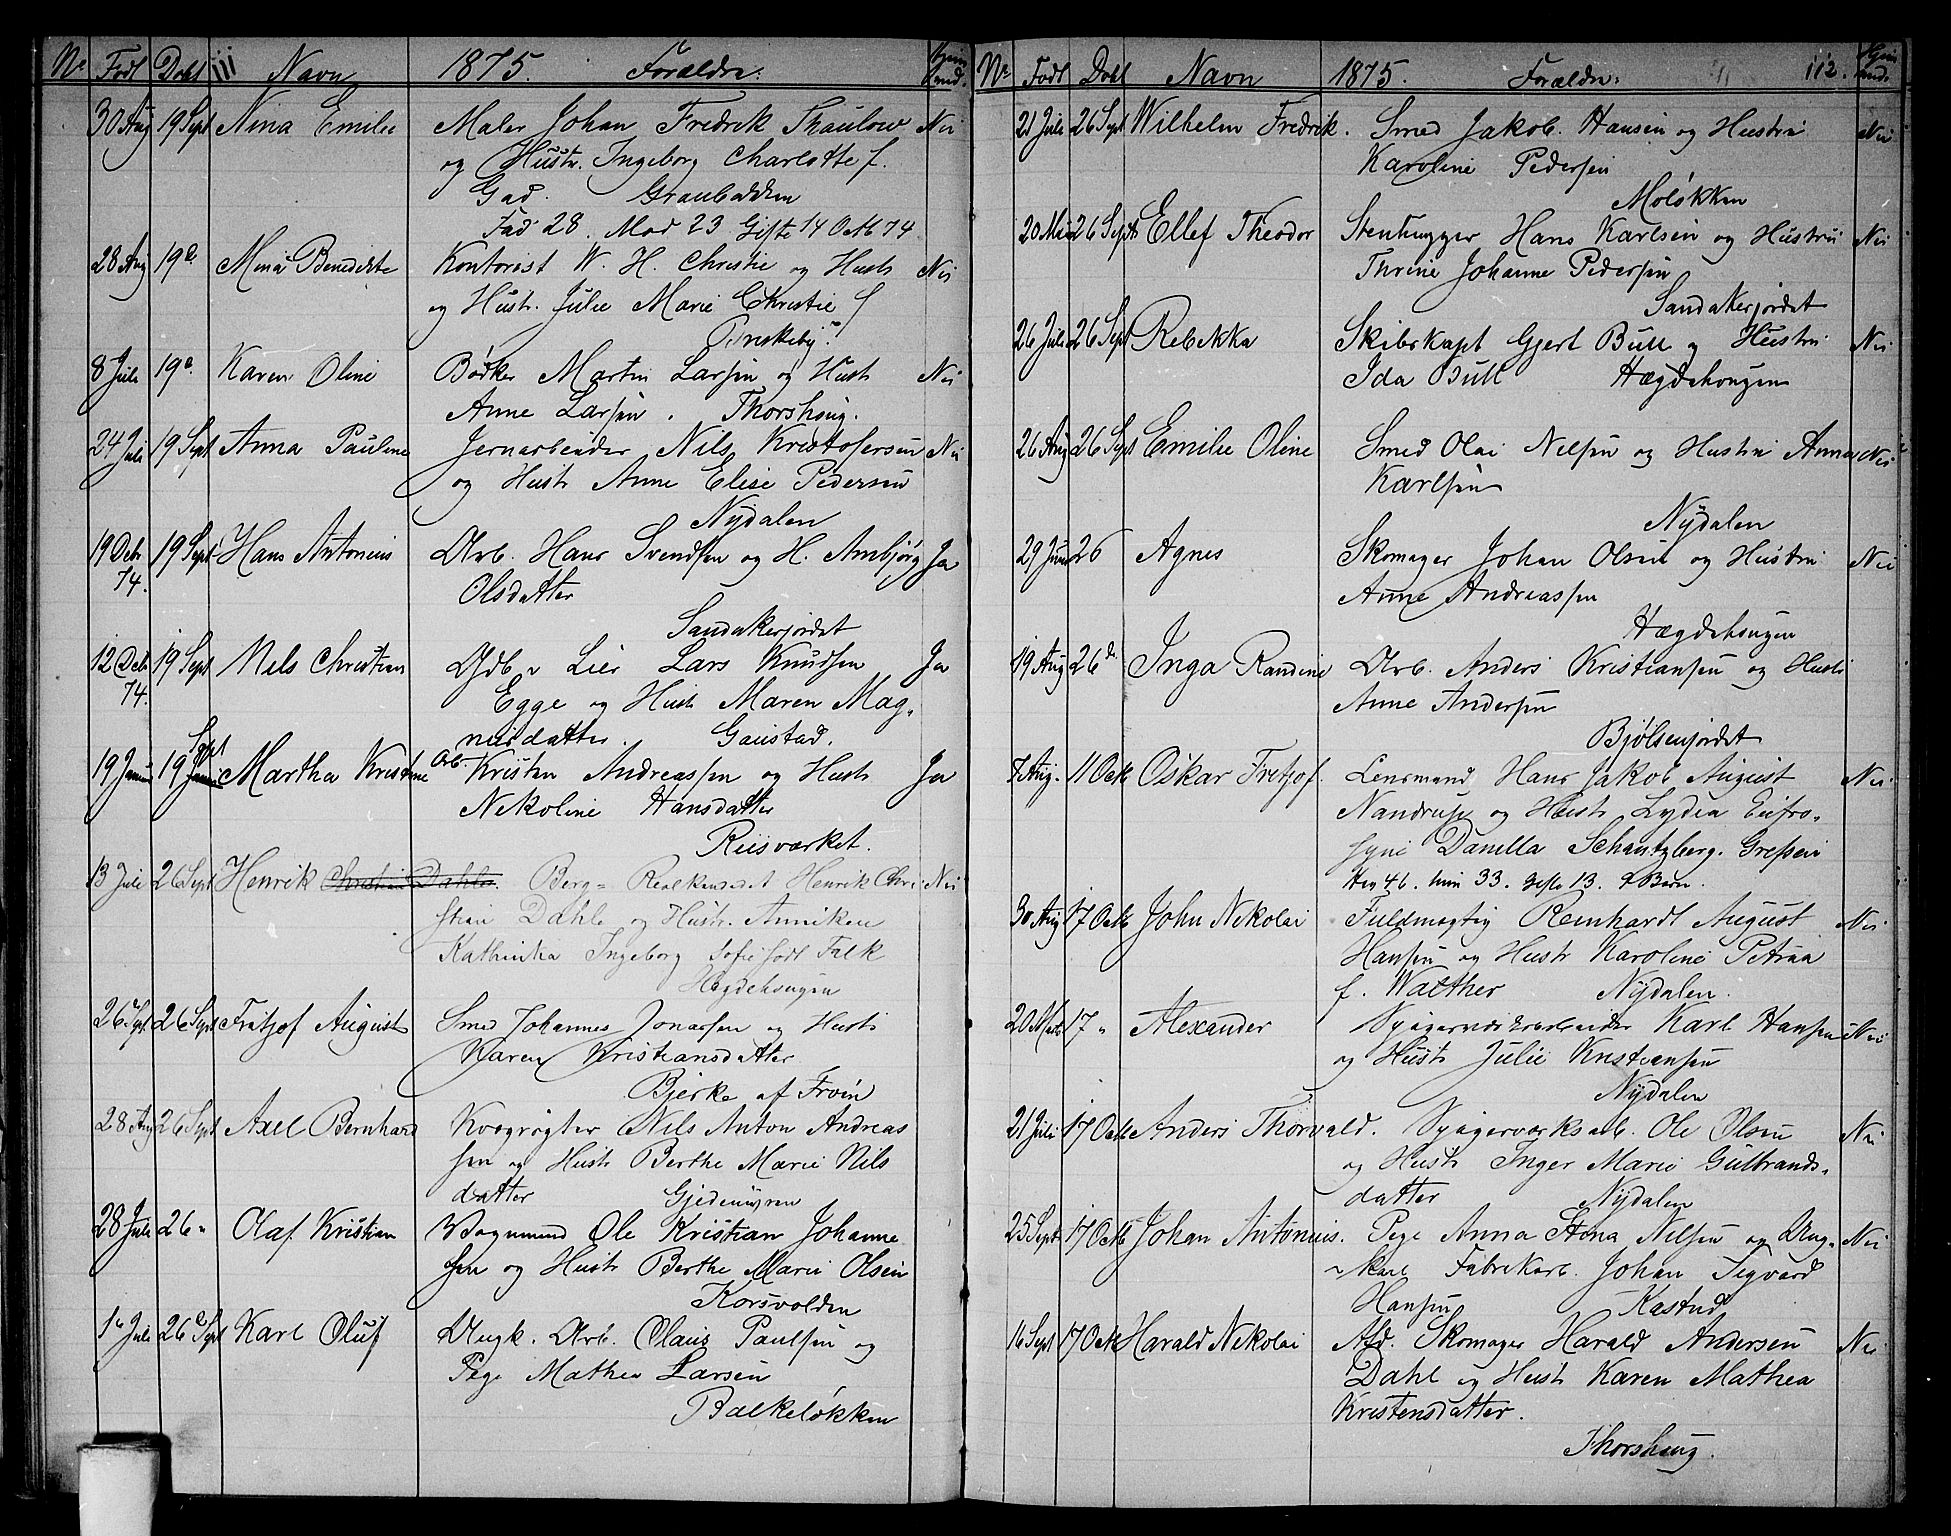 No Født Døbt 111 Navn 1875. Forældre:
30 Aug 19 Sept Nina Emilie Maler Johan Fredrik Thaulow Nei
og Hustr. Ingeborg Charlotte f.
Gad. Graubækken
Fad 28. Mod 23 Gifte 14 Octb 74
28 Aug 19 Mina Benedikte Kontorist W. H. Christie og Hustr Nei
og Hustr. Julie Marie Christie f
Briskeby
8 Juli 19 Karen Oline Bødker Martin Larsen og Hust Nei
Anne Larsen. Thorshaug.
24 Juli 19 Sept Anna Pauline Jernarbeider Nils Kristofersen Nei
og Hustr Anne Elise Pedersen
Nydalen
19 Debr 19 Sept Hans Antonius Arb. Hans Svendsen og H. Ambjørg Ja
74. Olsdatter
Sandakerjordet
12 Deb 19 Sept Nils Christian Gdb. Lier Lars Knudsen Ja
74. Egge og Hustr Maren Mag-
nusdatter. Gaustad.
Sept
19 Juni 19 Juni Martha Kristine Arb Kristen Andreassen og Hustr Ja
Nikoline Hansdatter
Riisværket.
13 Juli 26 Sept Henrik Christian Dahle. Berg- Realkandidat Henrik Chri Nei
stian Dahle og Hustr. Anniken
Kathinka Ingeborg Sofie født Falk
Hægdehougen
26 Sept 26 Sept Fritjof August Smed Johannes Jonassen og Hustr
Karen Kristiansdatter
Bjerke af Froen
28 Aug 26 Sept Axel Bernhard Kvægrøgter Nils Anton Andreas
sen og Hustr Berthe Marie Nils
datter Gjedemyren
28 Juli 26 " Olaf Kristian Vognmand Ole Kristian Johanne
sen og Hustr Berthe Marie Olsen
Korsvolden
16 Juli 26 Sept Karl Oluf Ungk. Arb. Olaus Paulsen og
Pige Mathea Larsen
Balkeløkken
No Født Døbt Navn 1875. Forældre: 112.
21 Juli 26 Sept Wilhelm Fredrik. Smed Jakob Hansen og Hustru Nei
Karoline Pedersen
Moløkken
20 Mai 26 Sept Ellef Theodor Stenhugger Hans Karlsen og Hustru Nei
Thrine Johanne Pedersen
Sandakerjordet
26 Juli 26 Sept Rebekka Skibskapt Gjert Bull og Hustru Nei
Ida Bull Hægdehougen
26 Aug 26 Sept Emilie Oline Smed Olai Nilsen og Hustru Anna Nei
Karlsen
Nydalen
29 Juni 26 Agnes Skomager Johan Olsen og Hustru Nei
Anne Andreassen
Hægdehougen
19 Aug 26 d. Inga Randine Arb. Anders Kristiansen og Hustr
Anne Andersen
Bjølsenjordet
7 Aug. 11 Octb Oskar Fritjof. Lensmand Hans Jakob August Nei
Nandrup og Hustr Lydia Eufro-
syne Danilla Schantzberg. Grefsen
Han 46. hun 33. gifte 13. 9 Børn.
30 Aug 17 Octb John Nikolai Fuldmægtig Reinhardt August Nei
Hansen og Hustr Karoline Petrea
f. Walther Nydalen.
20 Mai 17 " Alexander Spigerværksarbeider Karl Hansen Nei
og Hustr Julie Kristiansen
Nydalen
21 Juli 17 Octb Anders Thorvald. Spigerværksarb. Ole Olsen Nei
og Hustr Inger Marie Gulbrands-
datter Nydalen
25 Sept 17 Octb Johan Antonius. Pige Anna Stina Nilsen og Ung- Nei
karl Fabrikarb. Johan Sigvard
Hansen Kastud
16 Sept 17 Octb Harald Nikolai Afd. Skomager Harald Andersen Nei
Dahl og Hustr Karen Mathea
Kristensdatter.
Thorshaug.